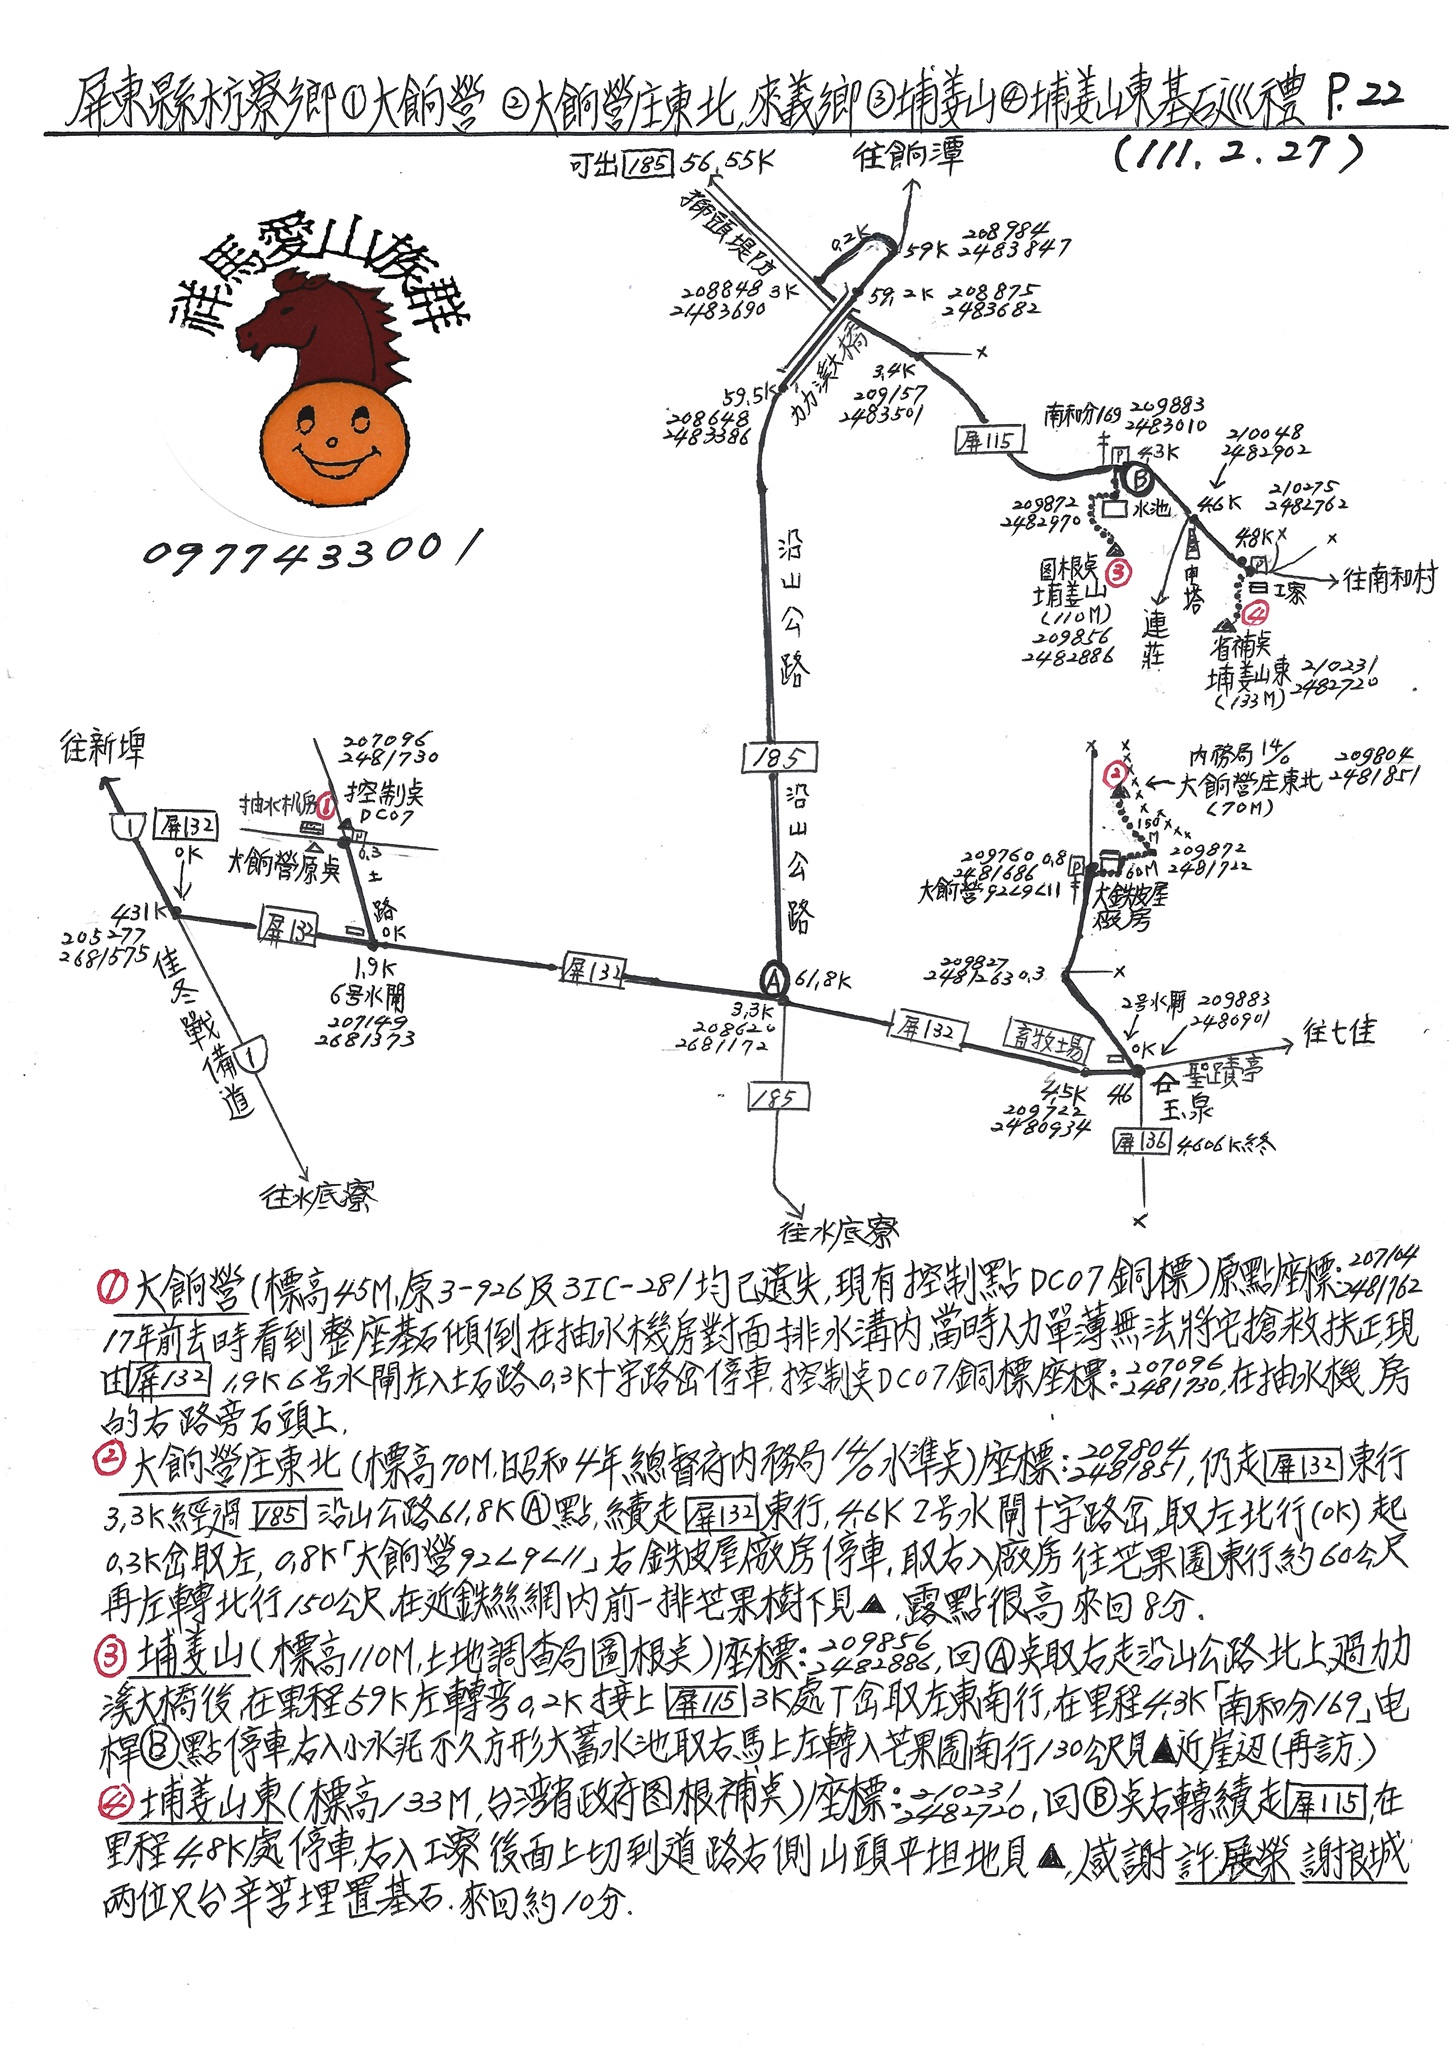 屏東縣枋寮鄉①大餉營 ②大餉營庄東北,來義鄉③埔姜山④埔姜山東基石巡禮 P.22
(111.2.27)
可出 185 56.55K
往餉潭
祥馬愛山族群
0977433001
獅頭堤防
0.2K
59K 208984
2483847
208848 3K
2483690
59.2K 208875
2483682
力力溪大橋
59.5K
208648
2483386
3.4K
209157
2483501
x
屏115
南和分169 209883
2483010
P 4.3K
B
210048
2482902
4.6K
210275
2482762
209872
2482970
水池
4.8K x
x
P
工寮
往南和村
图根点
埔姜山
(110M)
209856
2482886
③
連莊
电塔
④
省補点
埔姜山東 210231
(133M) 2482720
沿山公路
185
沿山公路
往新埤
1
屏132
0K
207096
2481730
抽水机房
①
控制点
DC07
P
大餉營原点
0.3
土路
0K
431K
205277
2681575
屏132
1.9K
6号水閘
207149
2681373
佳冬戰備道
1
往水底寮
屏132
A
61.8K
3.3K
208620
2681172
185
往水底寮
屏132
畜牧場
4.5K
209722
2480934
x
②
內務局14/0 209804
大餉營庄東北 2481851
(70M)
150M
209760 0.8
2481686
大餉營92L9L11
P
60M
209872
2481722
大鉄皮屋
廠房
209827
2481263 0.3
x
2号水閘 209883
2480901
0K
往七佳
4.6
聖蹟亭
玉泉
屏136 4.606K終
x
① 大餉營(標高45M,原3-926及3IC-281均已遺失,現有控制點DC07銅標)原點座標:207104
2481762
17年前去時看到整座基石傾倒在抽水機房對面排水溝內,當時人力單薄無法將它搶救扶正,現
由屏132 1.9K 6号水閘左入土石路0.3K十字路岔停車,控制点DC07銅標座標:207096
2481730,在抽水機房
的右路旁石頭上.
② 大餉營庄東北(標高70M,昭和4年總督府內務局14/0水準点)座標:209804
2481851,仍走屏132東行
3.3K經過185沿山公路61.8KⒶ點,續走屏132東行,4.6K 2号水閘十字路岔,取左北行(0K)起
0.3K岔取左,0.8K「大餉營92L9L11」右鉄皮屋廠房停車,取右入廠房往芒果園東行約60公尺
再左轉北行150公尺,在近鉄絲網內前一排芒果樹下見▲,露點很高,來回8分.
③ 埔姜山(標高110M,土地調查局圖根点)座標:209856
2482886,回Ⓐ点取右走沿山公路北上,過力力
溪大橋後,在里程59K左轉彎0.2K接上屏115 3K處丁岔取左東南行,在里程4.3K「南和分169」电
桿Ⓑ點停車,右入小水泥不久方形大蓄水池取右,馬上左轉入芒果園南行130公尺見▲近崖边(再訪.)
④ 埔姜山東(標高133M,台湾省政府图根補点)座標:210231
2482720,回Ⓑ点右轉續走屏115,在
里程4.8K處停車,右入工寮後面上切到道路右側山頭平坦地見▲,感謝許展榮 謝良城
兩位兄台辛苦埋置基石.來回約10分.